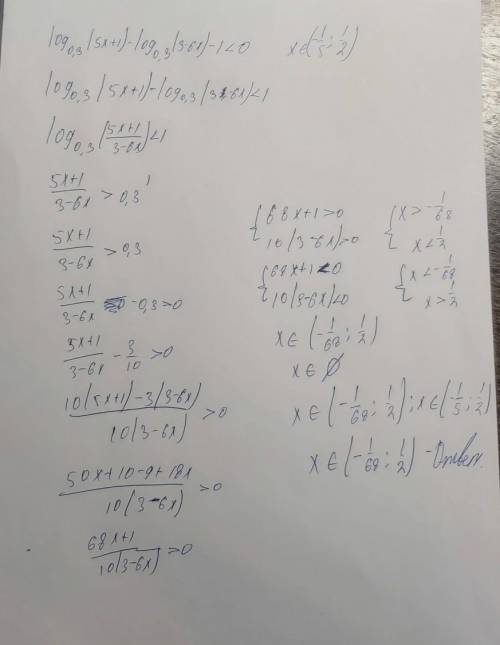 log₀,₃(5x+1)-log₀,₃(3-6x)-1<0
x∈(-1/5; 1/2)
log₀,₃(5x+1)-log₀,₃(3-6x)<1
log₀,₃(5x+1/3-6x)<1
5x+1/3-6x > 0,3¹
5x+1/3-6x > 0,3
5x+1/3-6x -0,3>0
5x+1/3-6x - 3/10 >0
10(5x+1)-3(3-6x)/10(3-6x) >0
50x+10-9+18x/10(3-6x) >0
68x+1/10(3-6x) >0
{68x+1>0
10(3-6x)>0
{x>-1/68
x<1/2
{68x+1<0
10(3-6x)<0
{x<-1/68
x>1/2
x∈(-1/68; 1/2)
x∈∅
x∈(-1/68; 1/2); x∈(-1/5; 1/2)
x∈(-1/68; 1/2) - Ответ.